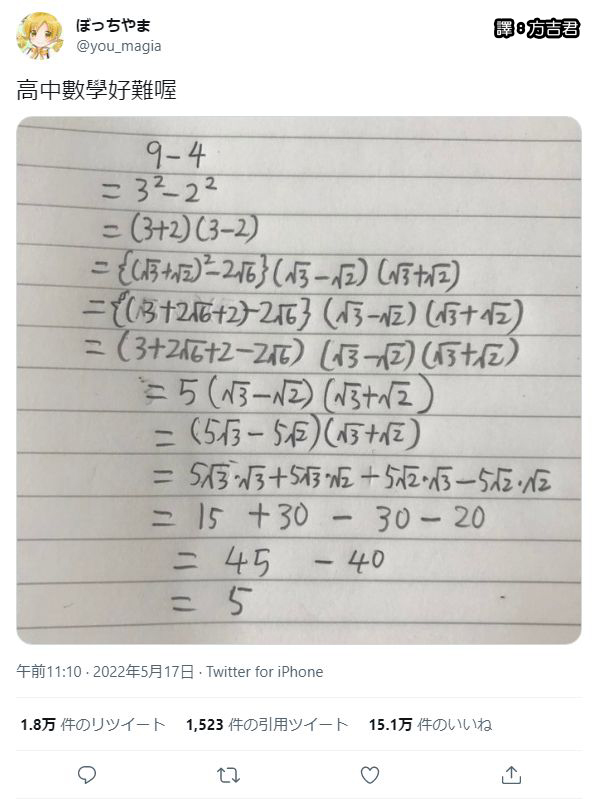 ぼっちやま
@you_magia
譯:方吉君
高中數學好難喔
9-4
= 3²-2²
= (3+2)(3-2)
= {(√3+√2)²-2√6}(√3-√2)(√3+√2)
= {(√3+2√6+2)-2√6}(√3-√2)(√3+√2)
= (3+2√6+2-2√6)(√3-√2)(√3+√2)
= 5(√3-√2)(√3+√2)
= (5√3-5√2)(√3+√2)
= 5√3·√3+5√3·√2+5√2·√3-5√2·√2
= 15 +30 - 30 - 20
= 45 - 40
= 5
午前11:10 · 2022年5月17日 · Twitter for iPhone
1.8万 件のリツイート 1,523 件の引用ツイート 15.1万 件のいいね